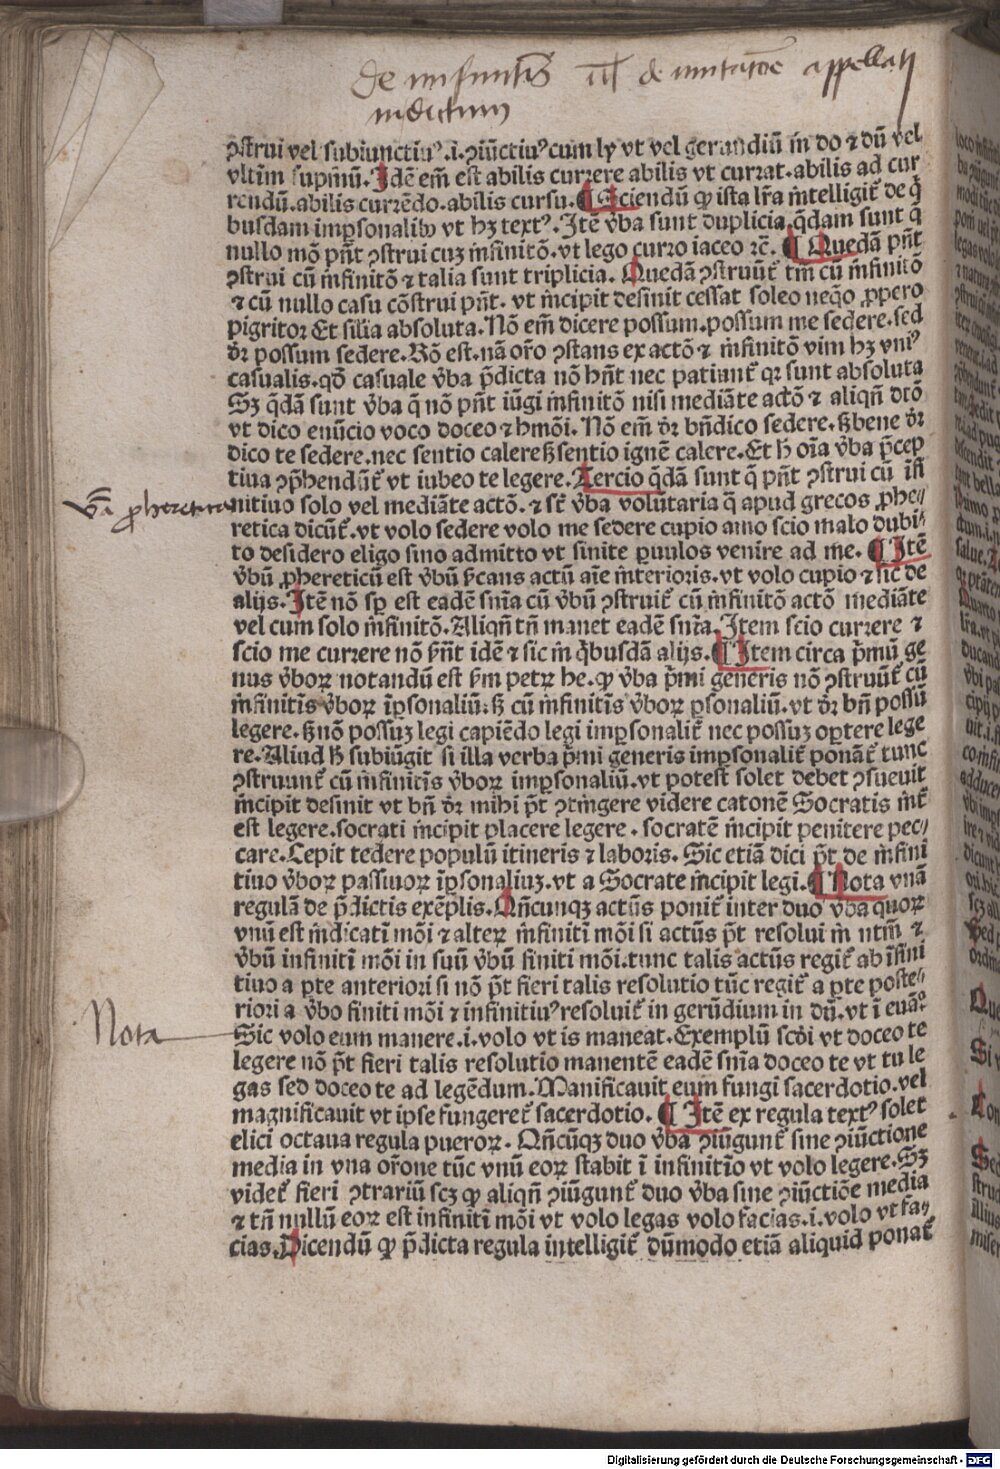 ꝯstrui vel subiunctiuꝰ .i. ꝯiūctiuꝰ cum ly vt vel gerundiū in do ⁊ dū vel
vltīm supinū. Idē em̄ est abilis currere abilis vt currat. abilis ad cur
rendū. abilis currēdo. abilis cursu. ¶ Sciendū ꝙ ista lr̄a intelligit̄ de q̇
busdam imꝑsonalibꝰ vt hꝫ textꝰ. Itē v̄ba sunt duplicia. q̄dam sunt q̄
nullo mō pn̄t ꝯstrui cuꝫ infinitō. vt lego curro iaceo ⁊c̄. ¶ Quedā pn̄t
ꝯstrui cū infinitō ⁊ talia sunt triplicia. Quedā ꝯstruūt̄ tm̄ cū infinitō
⁊ cū nullo casu cōstrui pn̄t. vt incipit desinit cessat soleo neqo ꝓpero
pigritor Et silia absoluta. Nō em̄ dicere possum. possum me sedere. sed
dr̄ possum sedere. Rō est. nā or̄o ꝯstans ex actō ⁊ infinitō vim hꝫ vniꝰ
casualis. qd̄ casuale v̄ba p̄dicta nō hn̄t nec patiunt̄ qꝛ sunt absoluta
Sꝫ q̄dā sunt v̄ba q̄ nō pn̄t iūgi infinitō nisi mediāte actō ⁊ aliqn̄ dtō
vt dico enūcio voco doceo ⁊ hmōi. Nō em̄ dr̄ bn̄dico sedere. ß bene dr̄
dico te sedere. nec sentio calere ß sentio ignē calere. Et h̄ oīa v̄ba p̄cep
tiua ꝯp̄hendūt̄ vt iubeo te legere. Tercio q̄dā sunt q̄ pn̄t ꝯstrui cū īfi
nitiuo solo vel mediāte actō. ⁊ st̄ v̄ba volutaria q̄ apud grecos ꝓhe⸗
retica dicūt̄. vt volo sedere volo me sedere cupio amo scio malo dubi⸗
to desidero eligo sino admitto vt sinite ꝑuulos venire ad me. ¶ Itē
v̄bū ꝓhereticū est v̄bū sīcans actū aīe interioris. vt volo cupio ⁊ sic de
alijs. Itē nō sꝑ est eadē snīa cū v̄bū ꝯstruit̄ cū infinitō actō mediāte
vel cum solo infinitō. Aliqn̄ tn̄ manet eadē snīa. Item scio currere ⁊
scio me currere nō sn̄t idē ⁊ sic in q̇busdā alijs. ¶ Item circa p̄mū ge
nus v̄boꝝ notandū est ẜm petꝝ he. ꝙ v̄ba p̄mi generis nō ꝯstruūt̄ cū
infinitīs v̄boꝝ īꝑsonaliū. ß cū infinitīs v̄boꝝ ꝑsonaliū. vt dr̄ bn̄ possū
legere. ß nō possuꝫ legi capiēdo legi imꝑsonalit̄ nec possuꝫ oꝑtere lege
re. Aliud h̄ subiūgit si illa verba p̄mi generis imꝑsonalit̄ ponāt̄ tunc
ꝯstruunt̄ cū infinitīs v̄boꝝ imꝑsonaliū. vt potest solet debet ꝯsueuit
incipit desinit vt bn̄ dr̄ mihi pt̄ ꝯtingere videre catonē Socratis int̄
est legere. socrati incipit placere legere. socratē incipit penitere pec⸗
care. Cepit tedere populū itineris ⁊ laboris. Sic etiā dici pt̄ de infini
tiuo v̄boꝝ passiuoꝝ īꝑsonaliuꝫ. vt a Socrate incipit legi. ¶ Nota vnā
regulā de p̄dictis exēplis. Qn̄cunqꝫ actūs ponit̄ inter duo v̄ba quoꝝ
vnū est indicatī mōi ⁊ alteꝝ infinitī mōi si actūs pt̄ resolui in ntm̄ ⁊
v̄bū infinitī mōi in suū v̄bū finiti mōi. tunc talis actūs regit̄ ab īfini
tiuo a ꝑte anteriori si nō pt̄ fieri talis resolutio tūc regit̄ a ꝑte poste⸗
riori a v̄bo finiti mōi ⁊ infinitiuꝰ resoluit̄ in gerūdium in dū. vt ī euāº
Sic volo eum manere .i. volo vt is maneat. Exemplū scd̄i vt doceo te
legere nō pt̄ fieri talis resolutio manentē eadē snīa doceo te vt tu le
gas sed doceo te ad legēdum. Manificauit eum fungi sacerdotio. vel
magnificauit vt ipse fungeret̄ sacerdotio. ¶ Itē ex regula textꝰ solet
elici octaua regula pueroꝝ. Qn̄cūqꝫ duo v̄ba ꝯiūgunt̄ sine ꝯiūctione
media in vna or̄one tūc vnū eoꝝ stabit ī infinitīo vt volo legere. Sꝫ
videt̄ fieri ꝯtrariū scꝫ ꝙ aliqn̄ ꝯiūgunt̄ duo v̄ba sine ꝯiūctiōe media
⁊ tn̄ nullū eoꝝ est infinitī mōi vt volo legas volo facias .i. volo vt fa⸗
cias. Dicendū ꝙ p̄dicta regula intelligit̄ dūmodo etiā aliquid ponat̄
Nota
Digitalisierung gefördert durch die Deutsche Forschungsgemeinschaft - DFG